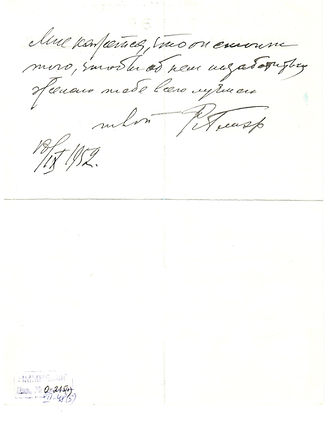 Мне кажется, что он стоит
того, чтобы об нем позаботиться
Желаю тебе всего лучшего
твой Р. Глиэр
IX 1952.